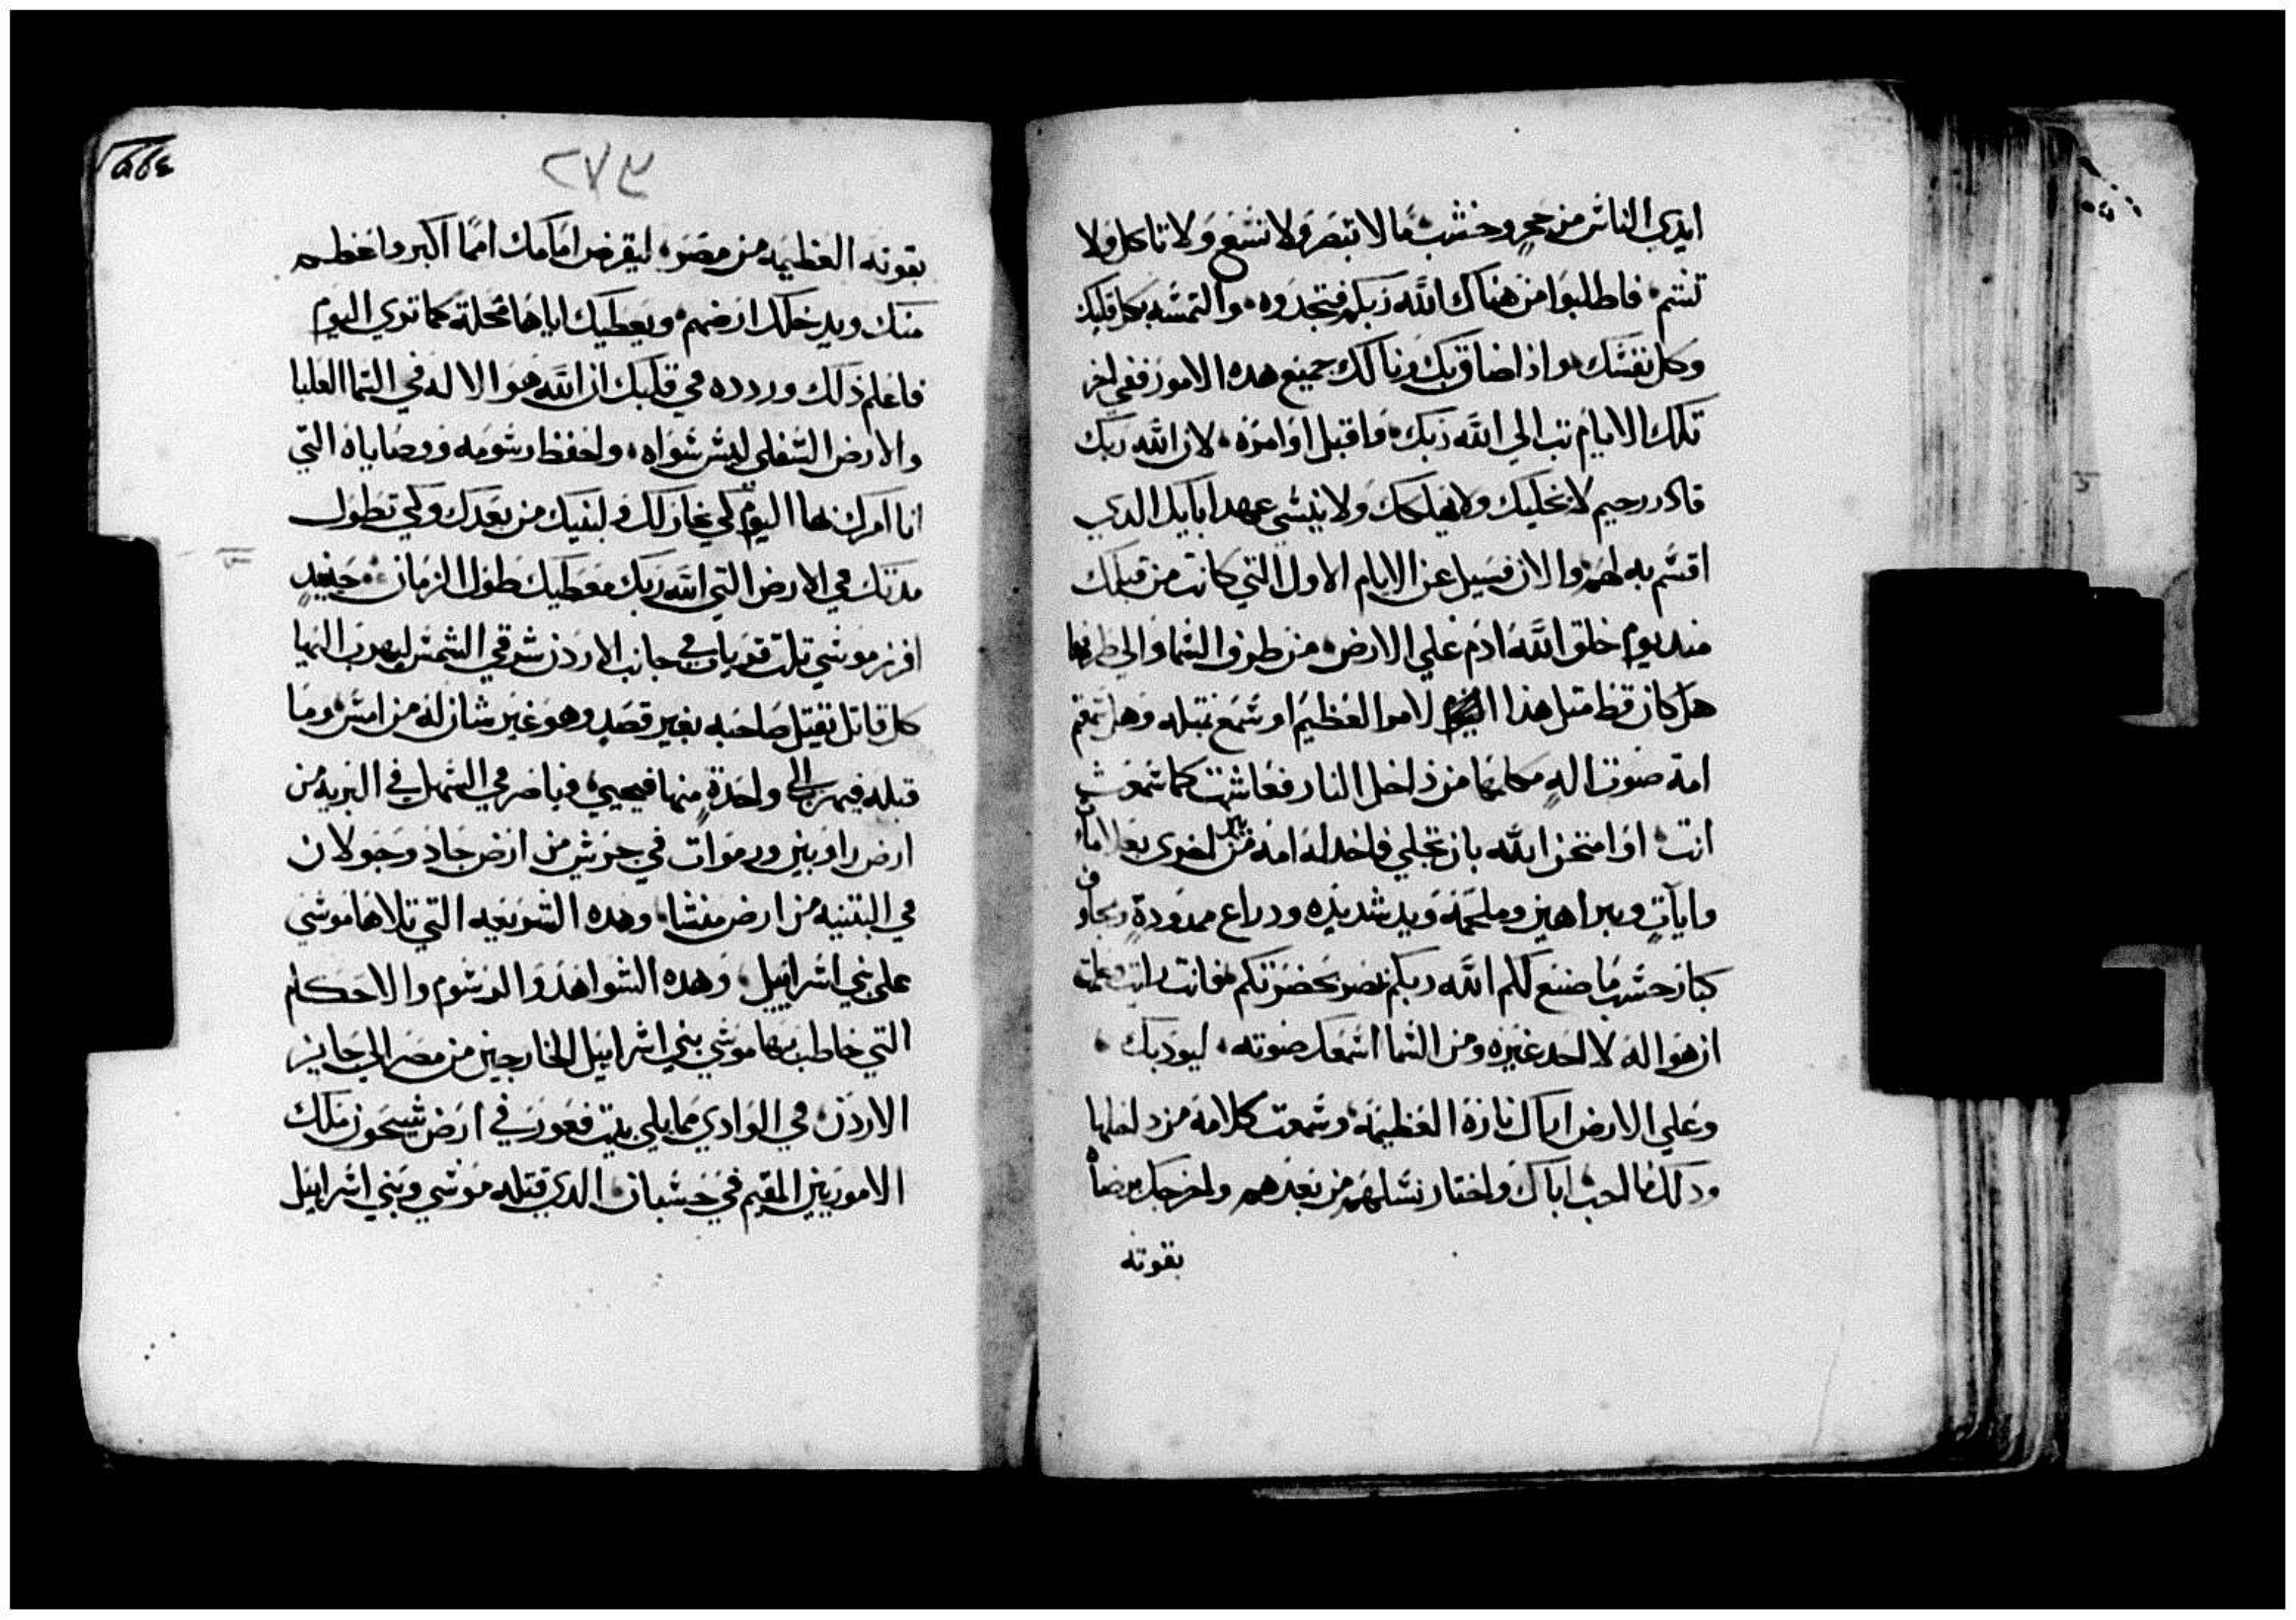 ايدي الناس من حجر وخشب مما لا تبصر ولا تسمع ولا تاكل ولا
تشم فاطلبوا من هناك الله ربكم فتجدوه والتمسه بكل قلبك
وكل نفسك واذا ضاق بك ونالك جميع هده الامور ففي اخر
تلك الايام تب الي الله ربك واقبل اوامره لان الله ربك
قادر رحيم لا يخليك ولا يهلكك ولا ينسي عهد ابايك الدي
اقسم به لهم والان فسيل عن الايام الاول التي كانت من قبلك
مند يوم خلق الله ادم علي الارض من طرف السما والي طرفها
هل كان قط متل هذا الامر العظيم او سمع بمتله وهل سمعتم
امة صوت اله مكلمها من داخل النار فعاشت كما سمعت
انت او امتحن الله بان تجلي فاخد له امه من بين اخري بعلامات
وايات وبراهين وملحمه ويد شديده ودراع ممدودة ومخاوف
كبار حسب ما صنع لكم الله ربكم بمصر بحضرتكم فانت رايت علمت
ان هو اله لا احد غيره ومن السما اسمعك صوته ليودبك
وعلي الارض اراك ناره العظيمه وسمعت كلامه من داخلها
ودلك لما احب اباك واختار نسلهم من بعدهم واخرجك برضاه
بقوته
٢٧٣
بقوته العظيمه من مصر ليقرض امامك امما اكبر واعظم
منك ويدخلك ارضهم ويعطيك اياها محلة كما تري اليوم
فاعلم ذلك وردده في قلبك ان الله هو الاله في السما العليا
والارض السفلي ليس سواه واحفظ رسومه ووصاياه التي
انا امرك بها اليوم لكي يخار لك ولبنيك من بعدك ولكي تطول
مدتك في الارض التي الله ربك معطيك طول الزمان حينيد
افرز موسي تلت قريات في جانب الاردن شرقي الشمس ليهرب اليها
كل قاتل يقتل صاحبه بغير قصد وهو غير شان له من امس وما
قبله فيهرب الي واحدة منها فيحيي فباصر في السهل في البريه من
ارض راوبين ورموات في جرش من ارض جاد وجولان
في البتنيه من ارض منشا وهده الشريعه التي تلاها موسي
علي بني اسراييل وهده الشواهد والرسوم والاحكام
التي خاطب بها موسي بني اسراييل الخارجين من مصر الي جايز
الاردن في الوادي مما يلي بيت فعور في ارض سيحون ملك
الاموريين المقيم في حسبان الدي قتله موسي وبني اسراييل